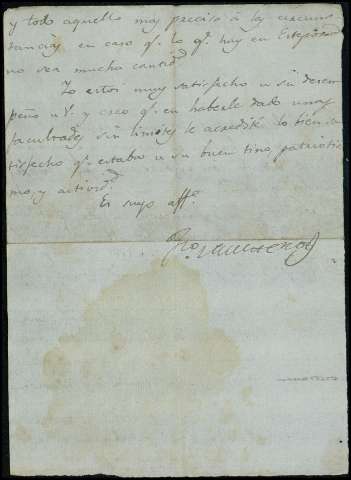 y todo aquello mas preciso á las circuns
tancias, en caso q.e lo q.e hay en
no sea mucha cantid.d
Yo estoy muy satisfecho de su desem
peño de V. y creo q.e en haberle dado unas
facultades sin limites le acredité lo bien sa
tisfecho q.e estaba de su buen tino, patriotis
mo, y activid.d
Es suyo aff.o